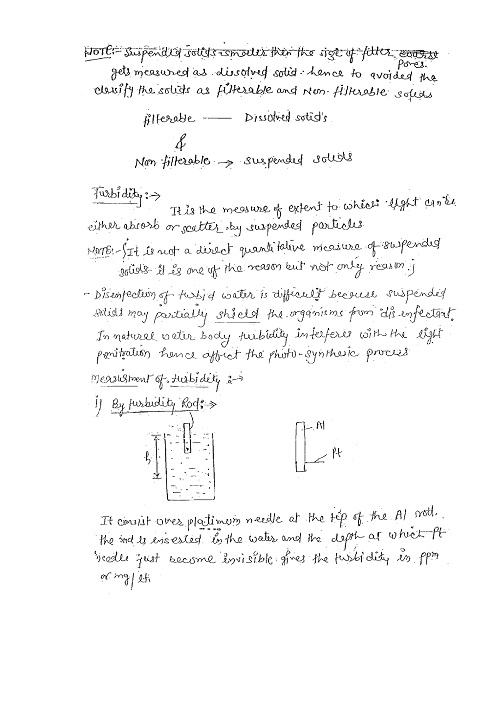 NOTE:- Suspended solids smaller then the size of filter
pores.
gets measured as dissolved solid. hence to avoided the
classify the solids as filterable and Non-filterable solids
filterable —— Dissolved solids
&
Non filterable → suspended solids
Turbidity:→
It is the measure of extent to which light can be
either absorb or scatter by suspended particles
NOTE:- {It is not a direct quantitative measure of suspended
solids it is one of the reason but not only reason}
- Disinfection of turbid water is difficult because suspended
solids may partially shield the organisms from disinfectant.
In natural water body turbidity interferes with the light
penitration hence affect the photo-synthesic process
Measurment of turbidity :→
i) By turbidity Rod:→
h
Al
Pt
It consist over platinum needle at the tip of the Al rod.
the rod is inserted in the water and the depth at which Pt
needle just become invisible gives the turbidity in ppm
or mg/lt